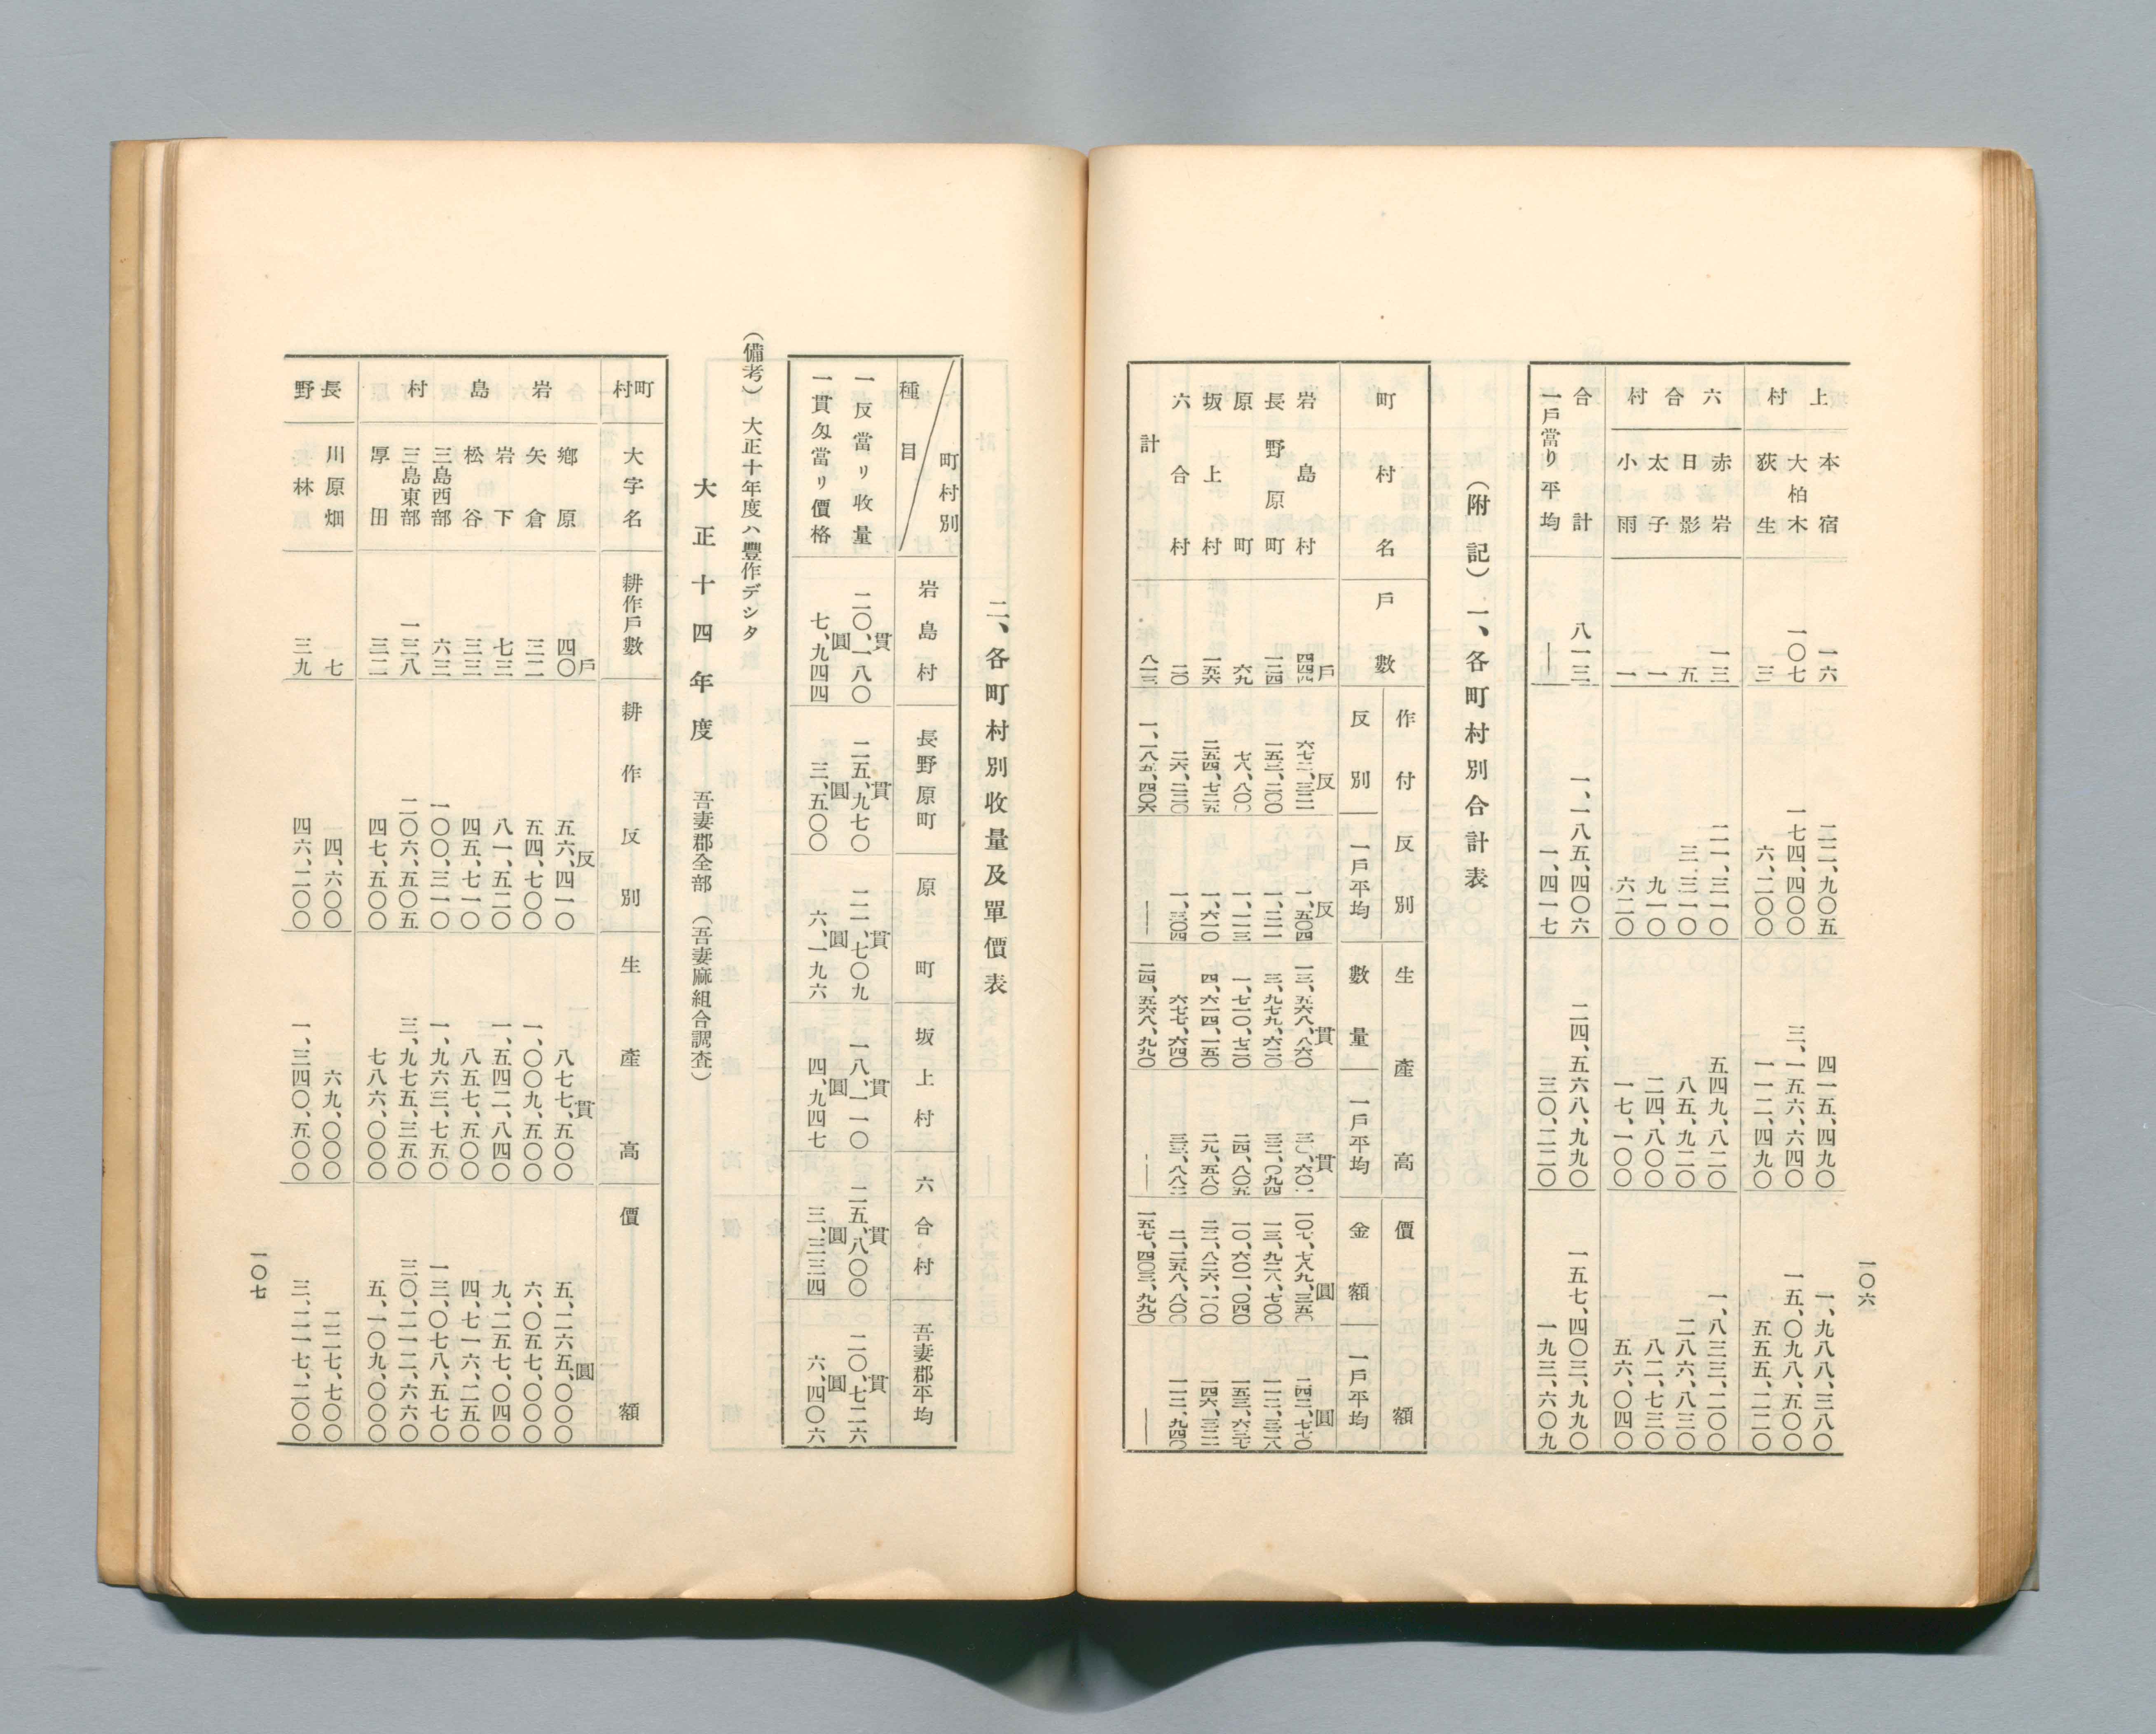 一〇六
上村 本宿 一六 二二、九〇五 四一五、四九〇 一、九八八、三八〇
大柏木 一〇七 一七四、四〇〇 三、一五六、六四〇 一五、〇九八、五〇〇
荻生 三 六、二〇〇 一一二、四九〇 五五五、二二〇
六合村 赤岩 一三 二一、三一〇 五四九、八二〇 一、八三三、二〇〇
日影 五 三、三一〇 八五、九二〇 二八六、八三〇
太子 一 九一〇 二四、八〇〇 八二、七三〇
小雨 一 六二〇 一七、一〇〇 五六、〇四〇
合計 八一三 一、一八五、四〇六 二四、五六八、九九〇 一五七、四〇三、九九〇
一戶當り平均 ― 一、四一七 三〇、二二〇 一九三、六〇九
（附記）一、各町村別合計表
町村名 戶數 作付反別 生產高 價額
反別 一戶平均 數量 一戶平均 金額 一戶平均
戶 反 反 貫 貫 圓 圓
岩島村 六七二、三二一 一、五〇四 一三、五六八、八六〇 一〇七、七八九、三五〇 二四二、七七〇
長野原町 一二四 一五三、二〇〇 一、二三一 三、九七九、六二〇 三二、〇九四 一三、九二八、七〇〇 一一二、三二八
原町 六九 七八、八〇〇 一、一二三 一、七一〇、七二〇 二四、八〇五 一〇、六〇一、〇四〇 一五三、六三七
坂上村 一五六 二五四、七二五 一、六一〇 四、六一四、一五〇 二九、五八〇 二二、八二六、一〇〇 一四六、三二一
六合村 二〇 二六、二二〇 一、三〇四 六七七、六四〇 三三、八八二 二、二五八、八〇〇 一一二、九四〇
計 八一三 一、一八五、四〇六 ― 二四、五六八、九九〇 ― 一五七、四〇三、九九〇 ―
二、各町村別收量及單價表
町村別 種目 岩島村 長野原町 原町 坂上村 六合村 吾妻郡平均
貫 貫 貫 貫 貫 貫
一反當リ收量 二〇、一八〇 二五、九七〇 二一、七〇九 一八、一一〇 二五、八〇〇 二〇、七二六
圓 圓 圓 圓 圓 圓
一貫匁當リ價格 七、九四四 三、五〇〇 六、一九六 四、九四七 三、三三四 六、四〇六
（備考）大正十年度ハ豐作デシタ
大正十四年度 吾妻郡全部（吾妻麻組合調査）
町村 大字名 耕作戶數 耕作反別 生產高 價額
戶 反 貫 圓
岩島村 鄉原 四〇 五六、四一〇 八七七、五〇〇 五、二六五、〇〇〇
矢倉 三二 五四、七〇〇 一、〇〇九、五〇〇 六、〇五七、〇〇〇
岩下 七三 八一、五二〇 一、五四二、八四〇 九、二五七、〇四〇
松谷 三三 四五、七一〇 八五七、五〇〇 四、七一六、二五〇
三島西部 六三 一〇〇、三一〇 一、九六三、七五〇 一三、〇七八、五七〇
三島東部 一三八 二〇六、五〇五 三、九七五、三五〇 三〇、二一二、六六〇
厚田 三二 四七、五〇〇 七八六、〇〇〇 五、一〇九、〇〇〇
長野 川原畑 一七 一四、六〇〇 六九、〇〇〇 二二七、七〇〇
林 三九 四六、二〇〇 一、三四〇、五〇〇 三、二一七、二〇〇
一〇七